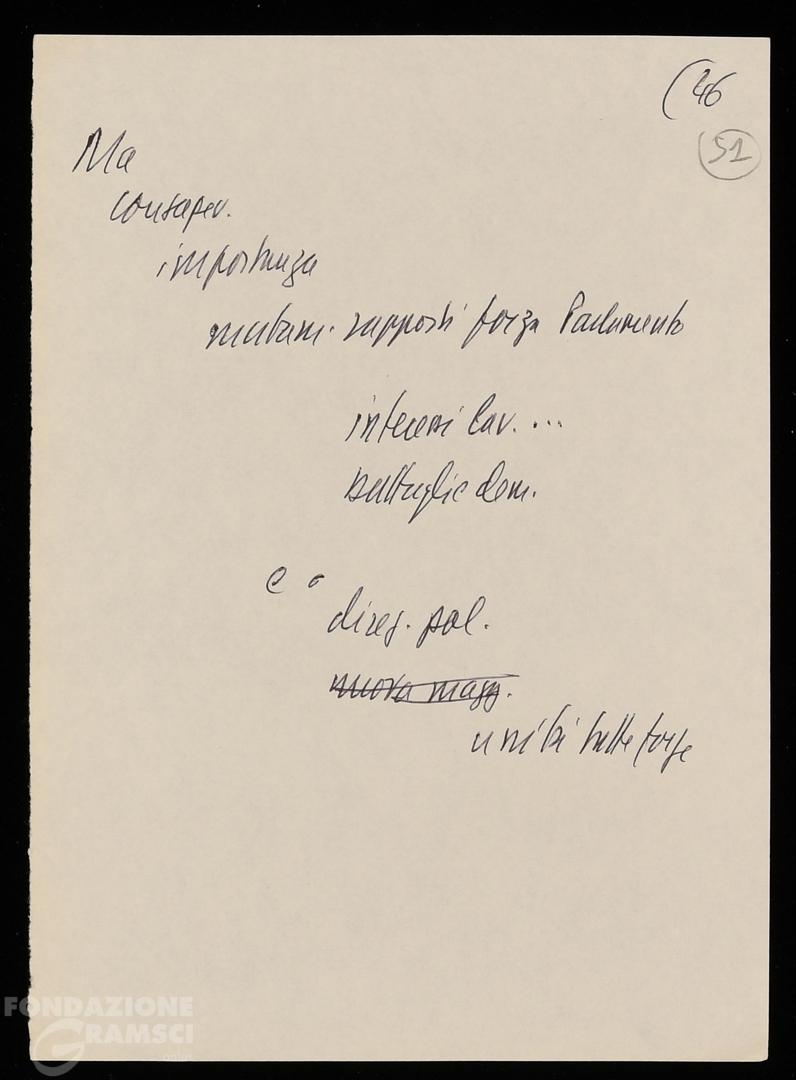 (46
51
Ma
consapev.
importanza
mutam. rapporti forza Parlamento
interessi lav. ...
battaglie dem.
e
direz. pol.
nuova magg.
unità tutte forze
FONDAZIONE
GRAMSCI
onlus